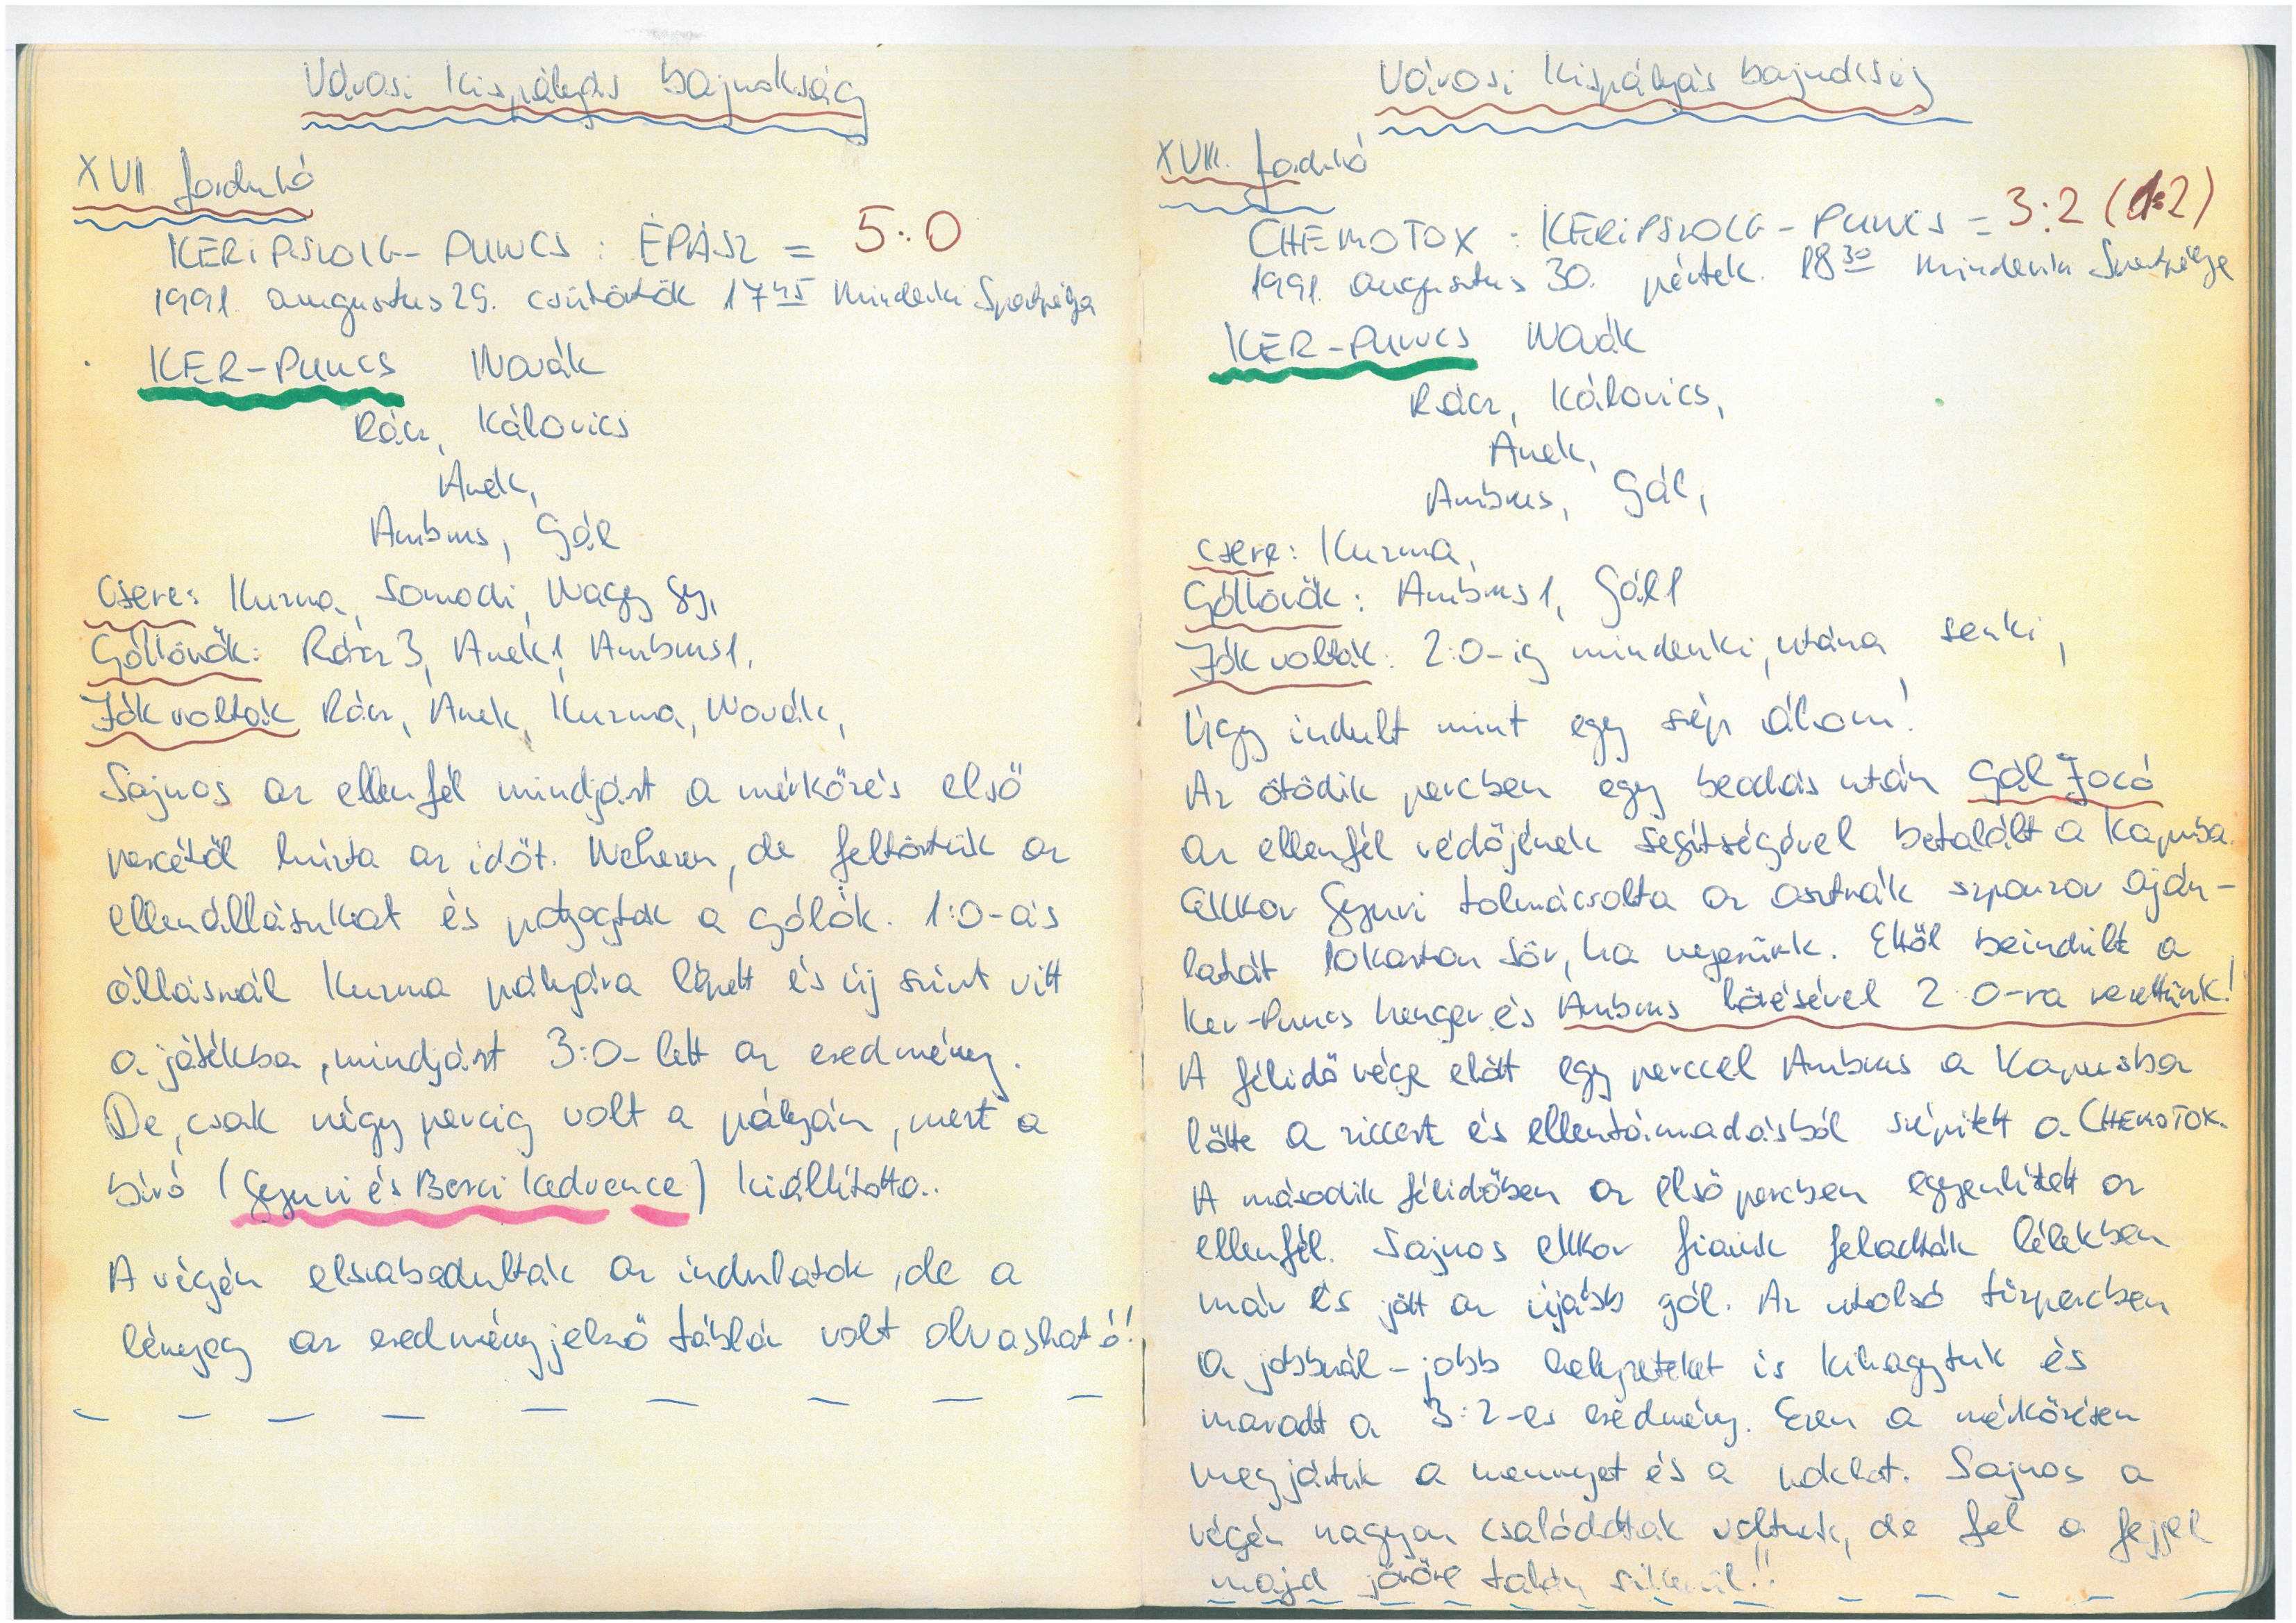 Városi Kispályás bajnokság
XVII forduló
KERIPSZOLG - PUNCS : ÉPÁSZ = 5:0
1991. augusztus 29. csütörtök 17 45 Mindenki Sportpálya
KER-PUNCS Novák
Rácz, Kálovics
Anek,
Ambrus, Gál
Csere: Kuzma, Somodi, Nagy Gy,
Góllövők: Rácz 3, Anek 1, Ambrus 1,
Jók voltak Rácz, Anek, Kuzma, Novák,
Sajnos az ellenfél mindjárt a mérkőzés első
percétől húzta az időt. Nehezen, de feltörtük az
ellenállásukat és potyogtak a gólok. 1:0-ás
állásnál Kuzma pályára lépett és új színt vitt
a játékba, mindjárt 3:0-lett az eredmény.
De, csak négy percig volt a pályán, mert a
bíró (Gyuri és Berci kedvence) kiállította..
A végén elszabadultak az indulatok, de a
lényeg az eredményjelző táblán volt olvasható!
Városi Kispályás bajnokság
XVIII. forduló
CHEMOTOX : KERIPSZOLG - PUNCS = 3:2 (1:2)
1991. augusztus 30. péntek. 18 30 Mindenki Sportpálya
KER-PUNCS Novák
Rácz, Kálovics,
Anek,
Ambrus, Gál,
Csere: Kuzma,
Góllövők: Ambrus 1, Gál 1
Jók voltak: 2:0-ig mindenki, utána senki,
Úgy indult mint egy szép álom!
Az ötödik percben egy beadás után Gál Jocó
az ellenfél védőjének segítségével betalált a kapuba.
Ekkor Gyuri tolmácsolta az osztrák szponzor aján-
latát 10karton sör, ha nyerünk. Ettől beindult a
Ker-Puncs henger és Ambrus lövésével 2:0-ra vezettünk!
A félidő vége előtt egy perccel Ambrus a kapusba
lőtte a ziccert és ellentámadásból szépített a CHEMOTOX.
A második félidőben az első percben egyenlített az
ellenfél. Sajnos ekkor fiaink feladták lélekben
már és jött az újabb gól. Az utolsó tízpercben
a jobbnál-jobb helyzeteket is kihagytuk és
maradt a 3:2-es eredmény. Ezen a mérkőzésen
megjártuk a mennyet és a poklot. Sajnos a
végén nagyon csalódottak voltunk, de fel a fejjel
majd jövőre talán sikerül!!